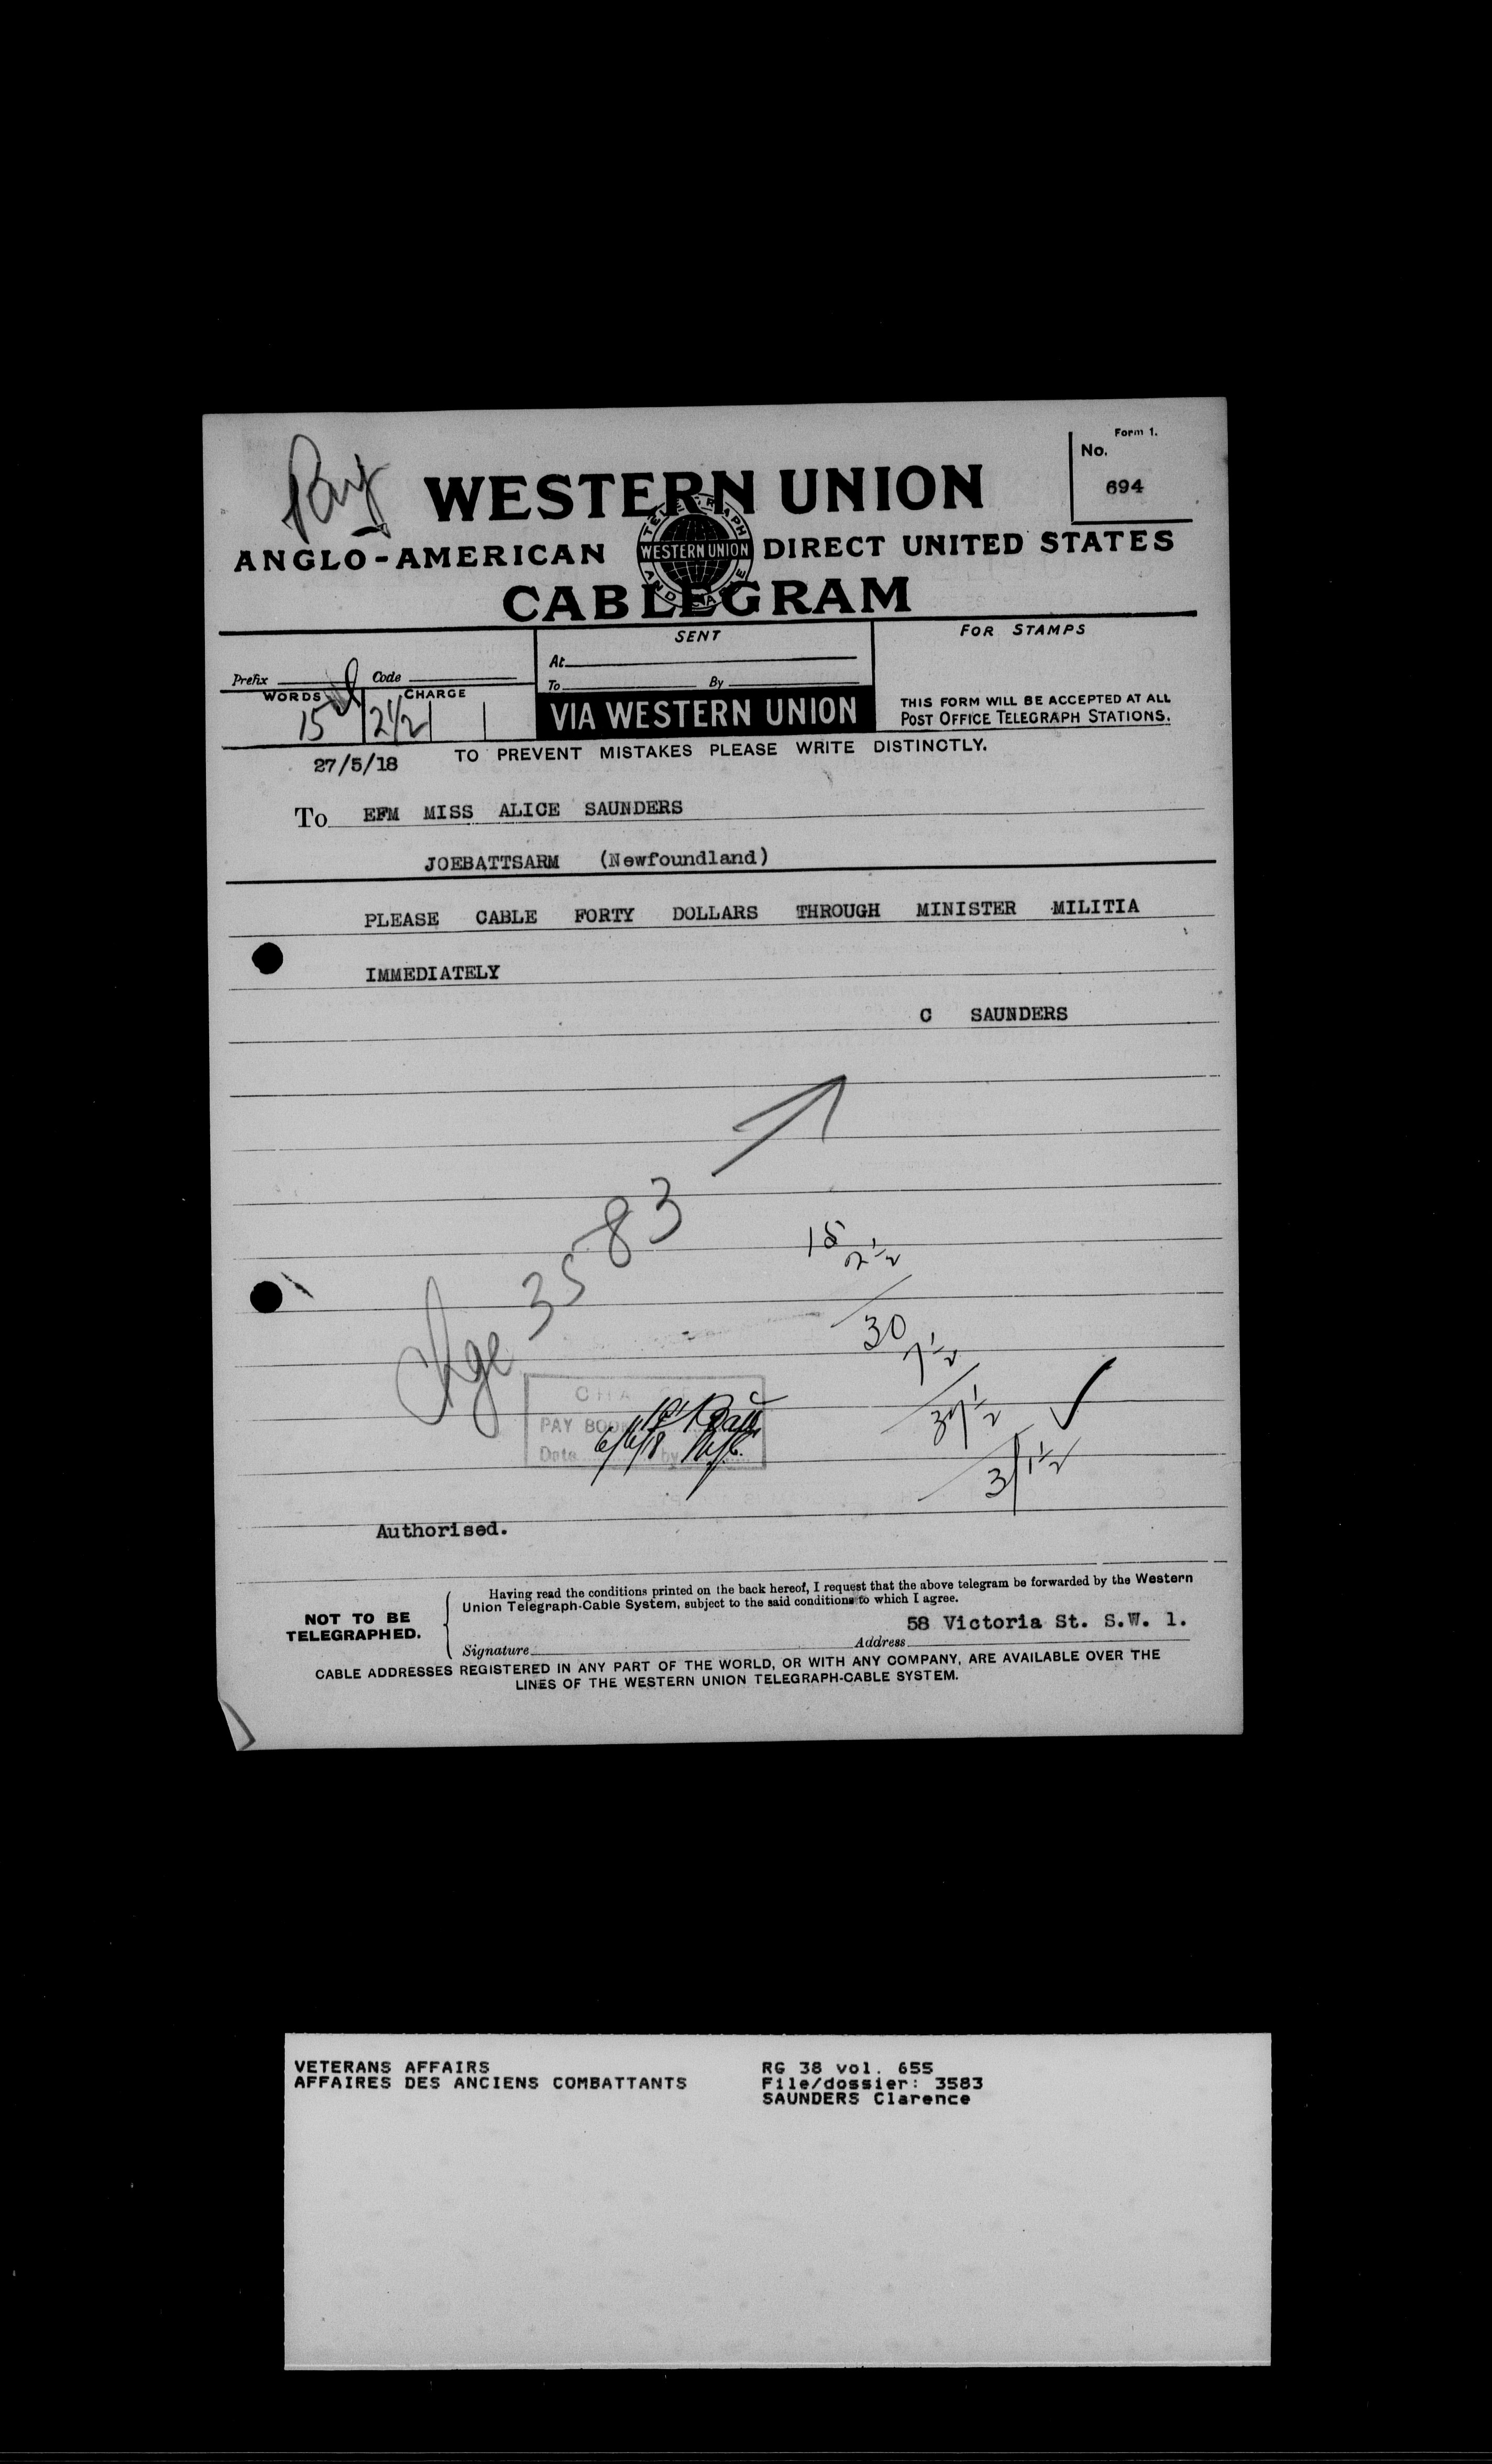 Form 1.
No.
694
Pay
WESTERN UNION
TELEGRAPH AND CABLE
WESTERN UNION
ANGLO-AMERICAN DIRECT UNITED STATES
CABLEGRAM
SENT
FOR STAMPS
At
Prefix Code
To By
WORDS CHARGE
15 2½
VIA WESTERN UNION
THIS FORM WILL BE ACCEPTED AT ALL
POST OFFICE TELEGRAPH STATIONS.
27/5/18
TO PREVENT MISTAKES PLEASE WRITE DISTINCTLY.
To EFM MISS ALICE SAUNDERS
JOEBATTSARM (Newfoundland)
PLEASE CABLE FORTY DOLLARS THROUGH MINISTER MILITIA
IMMEDIATELY
C SAUNDERS
Chge 3583
15
2½
30
7½
37½
3/1½
PAY BOOK
Date by
6/6/18
Authorised.
Having read the conditions printed on the back hereof, I request that the above telegram be forwarded by the Western
Union Telegraph-Cable System, subject to the said conditions to which I agree.
NOT TO BE
TELEGRAPHED.
58 Victoria St. S.W. 1.
Signature Address
CABLE ADDRESSES REGISTERED IN ANY PART OF THE WORLD, OR WITH ANY COMPANY, ARE AVAILABLE OVER THE
LINES OF THE WESTERN UNION TELEGRAPH-CABLE SYSTEM.
VETERANS AFFAIRS
AFFAIRES DES ANCIENS COMBATTANTS
RG 38 vol. 655
File/dossier: 3583
SAUNDERS Clarence